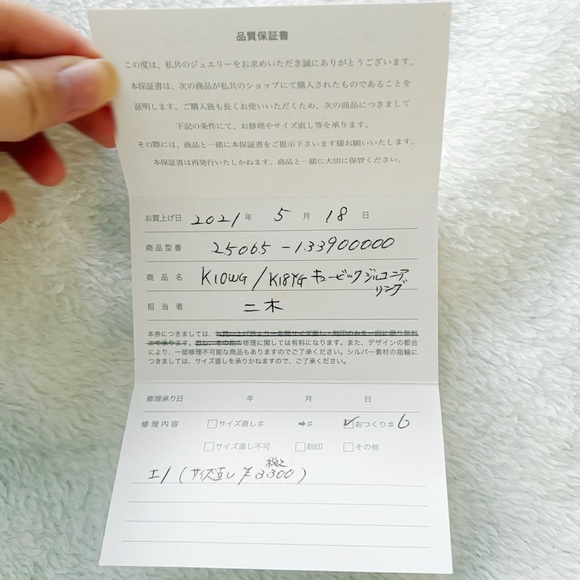 品質保証書
この度は、私共のジュエリーをお求めいただき誠にありがとうございます。
本保証書は、次の商品が私共のショップにて購入されたものであることを
証明します。ご購入後も長くお使いいただくため、次の商品につきまして
下記の条件にて、お修理やサイズ直し等を承ります。
その際には、商品と一緒に本保証書をご提示下さいます様お願いいたします。
本保証書は再発行いたしかねます。商品と一緒に大切に保管ください。
お買上げ日 2021 年 5 月 18 日
商品型番 25065-133900000
商品名 K10WG/K18YG キュービックジルコニア
リング
担当者 二木
本券につきましては、お買い上げ日より一年間サイズ直し・刻印のみを一回に限り無料
にて承ります。但し、その他の修理に関しては有料になります。また、デザインの都合
により、一部修理不可能な商品もありますのでご了承ください。シルバー素材の指輪に
つきましては、サイズ直しを承りかねますので、ご了承ください。
修理承り日 年 月 日
修理内容 サイズ直し# ⇒# おつくり# 6
サイズ直し不可 刻印 その他
税込
(サイズ直し ¥3300)